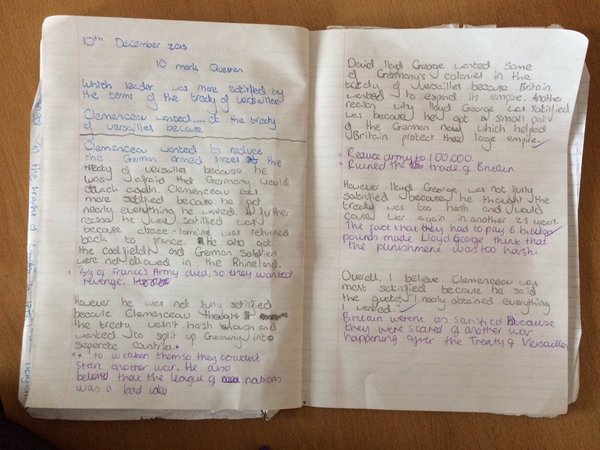 10th December 2015
10 mark Question
Which leader was more satisfied by
the terms of the treaty of versailles
Clemenceau wanted.... at the treaty
of versailles because
Clemenceau wanted to reduce
the German armed forces at the
treaty of versailles because he
was afraid that Germany would
attack again. Clemenceau was
more satisfied because he got
nearly everything he wanted. A further
reason he was satisfied was
because alsace-lorraine was returned
back to france. He also got
the coalfields and German soldiers
were not allowed in the Rhineland.
2/3 of France's Army died, so they wanted
revenge.
however he was not fully satisfied
because Clemenceau thought
the treaty wasn't harsh enough and
wanted to split up Germany into
seperate countries.*
* to weaken them so they couldn't
start another war. He also
believed that the league of nations
was a bad idea
David lloyd George wanted some
of Germany's colonies in the
treaty of versailles because Britain
wanted to expand it empire. Another
reason why lloyd George was satisfied
was because he got a small part
of the German navy which helped
Britain protect their large empire.
* Reduce army to 100,000.
* Ruined the trade of Britain
However lloyd George was not fully
satisfied because he thought the
treaty was too harsh and would
cause war again in another 23 years.
The fact that they had to pay 6 billion
pounds made Lloyd George think that
the punishment was too harsh.
Overall, I believe Clemenceau was
most satisfied because he said
the quote "I nearly obtained everything
I wanted."
Britain weren't as satisfied because
they were scared of another war
happening after the Treaty of Versailles